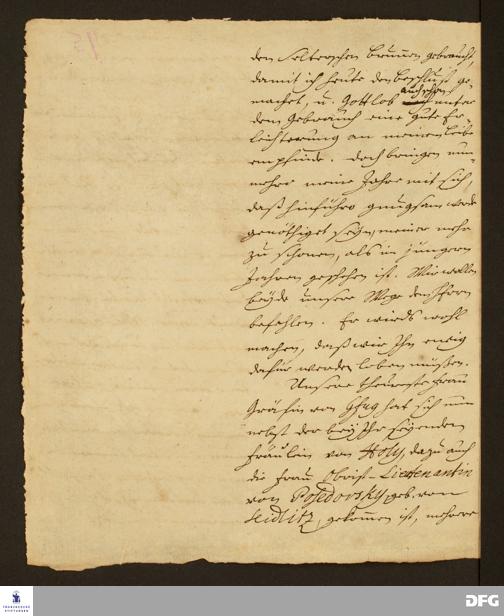 den Selterschen brunnen gebraucht,
damit ich heute den beschluß ge-
auch schon
machet, u. Gottlob unter
dem Gebrauch eine gute Er-
leichterung an meinem Leibe
empfinde. Doch bringen nun-
mehro meine Jahre mit sich,
daß hinführo gnugsam werde
genöthiget seyn, meiner mehr
zu schonen, als in jüngern
Jahren geschehen ist. Wir wollen
beyde unsere Wege dem HErrn
befehlen. Er wirds wohl
machen, daß wir Ihn ewig
dafür werden loben müßen.
Unsere theureste Frau
Gräfin von Gfug hat sich nun
nebst der bey Ihr seyenden
Fräulein von Holy, dazu auch
die Frau Obrist-Lieutenantin
von Posedovsky, geb. von
Seidlitz, gekommen ist, mehrere
DFG